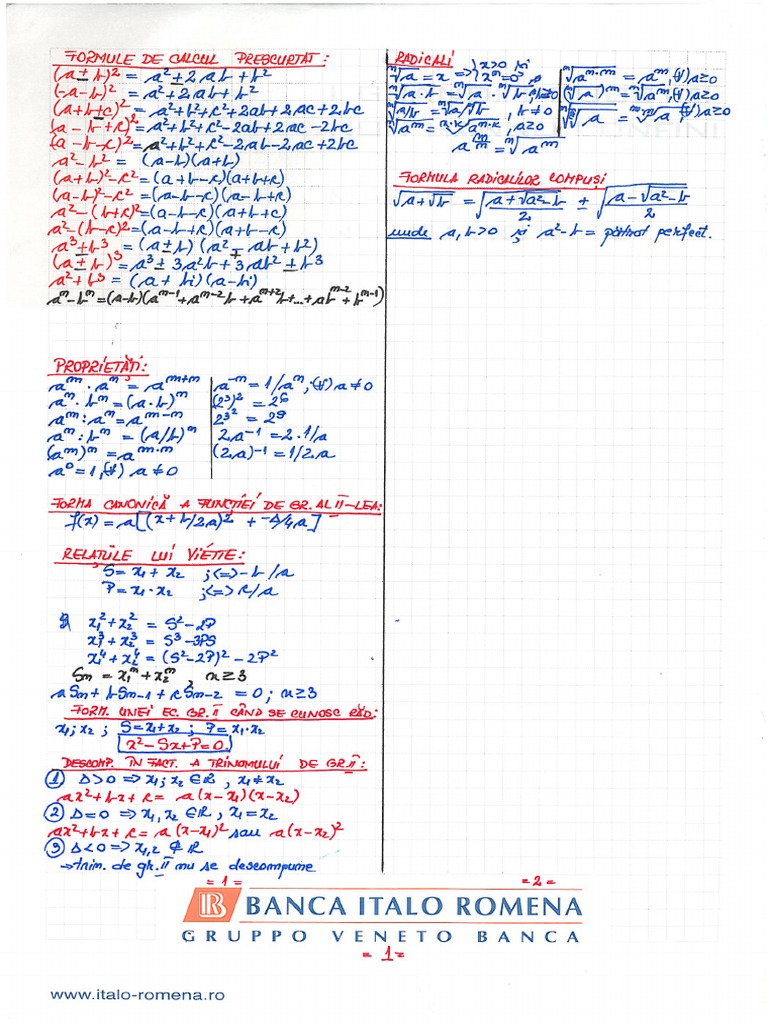 FORMULE DE CALCUL PRESCURTAT:
(a ± b)² = a² ± 2ab + b²
(-a - b)² = a² + 2ab + b²
(a + b + c)² = a² + b² + c² + 2ab + 2ac + 2bc
(a - b + c)² = a² + b² + c² - 2ab + 2ac - 2bc
(a - b - c)² = a² + b² + c² - 2ab - 2ac + 2bc
a² - b² = (a-b)(a+b)
(a+b)² - c² = (a+b-c)(a+b+c)
(a-b)² - c² = (a-b-c)(a-b+c)
a² - (b+c)² = (a-b-c)(a+b+c)
a² - (b-c)² = (a-b+c)(a+b-c)
a³ ± b³ = (a ± b)(a² ∓ ab + b²)
(a ± b)³ = a³ ± 3a²b + 3ab² ± b³
a² + b² = (a + bi)(a - bi)
aⁿ - bⁿ = (a-b)(aⁿ⁻¹ + aⁿ⁻²b + aⁿ⁺²b + ... + abⁿ⁻² + bⁿ⁻¹)
PROPRIETĂȚI:
aᵐ · aⁿ = aᵐ⁺ⁿ
aⁿ · bⁿ = (a·b)ⁿ
aᵐ : aⁿ = aᵐ⁻ⁿ
aⁿ : bⁿ = (a/b)ⁿ
(aᵐ)ⁿ = aᵐ·ⁿ
a⁰ = 1, (∀) a ≠ 0
a⁻ⁿ = 1/aⁿ, (∀) a ≠ 0
(2³)² = 2⁶
2^3² = 2⁹
2a⁻¹ = 2 · 1/a
(2a)⁻¹ = 1/2a
FORMA CANONICĂ A FUNCȚIEI DE GR. AL II-LEA:
f(x) = a[(x + b/2a)² + -Δ/4a]
RELAȚIILE LUI VIÉTTE:
S = x₁ + x₂ ; <=> -b/a
P = x₁ · x₂ ; <=> c/a
x₁² + x₂² = S² - 2P
x₁³ + x₂³ = S³ - 3PS
x₁⁴ + x₂⁴ = (S² - 2P)² - 2P²
Sn = x₁ⁿ + x₂ⁿ, n ≥ 3
aSn + bSn-1 + cSn-2 = 0 ; n ≥ 3
FORM. UNEI EC. GR. II CÂND SE CUNOSC RĂD:
x₁; x₂ ; S = x₁ + x₂ ; P = x₁·x₂
x² - Sx + P = 0
DESCOMP. ÎN FACT. A TRINOMULUI DE GR. II:
① Δ > 0 => x₁; x₂ ∈ R, x₁ ≠ x₂
ax² + bx + c = a(x-x₁)(x-x₂)
② Δ = 0 => x₁, x₂ ∈ R, x₁ = x₂
ax² + bx + c = a(x-x₁)² sau a(x-x₂)²
③ Δ < 0 => x₁,₂ ∉ R
→ trin. de gr. II nu se descompune
= 1 =
RADICALI
ⁿ√a = x => { x > 0 și
xⁿ = 0
ⁿ√a · b = ⁿ√a · ⁿ√b
ⁿ√a/b = ⁿ√a/ⁿ√b, b ≠ 0
ⁿ√aᵐ = ⁿ·ᵏ√aᵐ·ᵏ, a ≥ 0
ⁿ√aᵐ·ⁿ = aᵐ, (∀) a ≥ 0
(ⁿ√a)ᵐ = ⁿ√aᵐ, (∀) a ≥ 0
ᵐ√ⁿ√a = ᵐⁿ√a (∀) a ≥ 0
a^m/n = ⁿ√aᵐ
FORMULA RADICALILOR COMPUȘI
√a ± √b = √(a + √a² - b)/2 ± √(a - √a² - b)/2
unde a, b > 0 și a² - b = pătrat perfect.
= 2 =
BANCA ITALO ROMENA
GRUPPO VENETO BANCA
= 1 =
www.italo-romena.ro